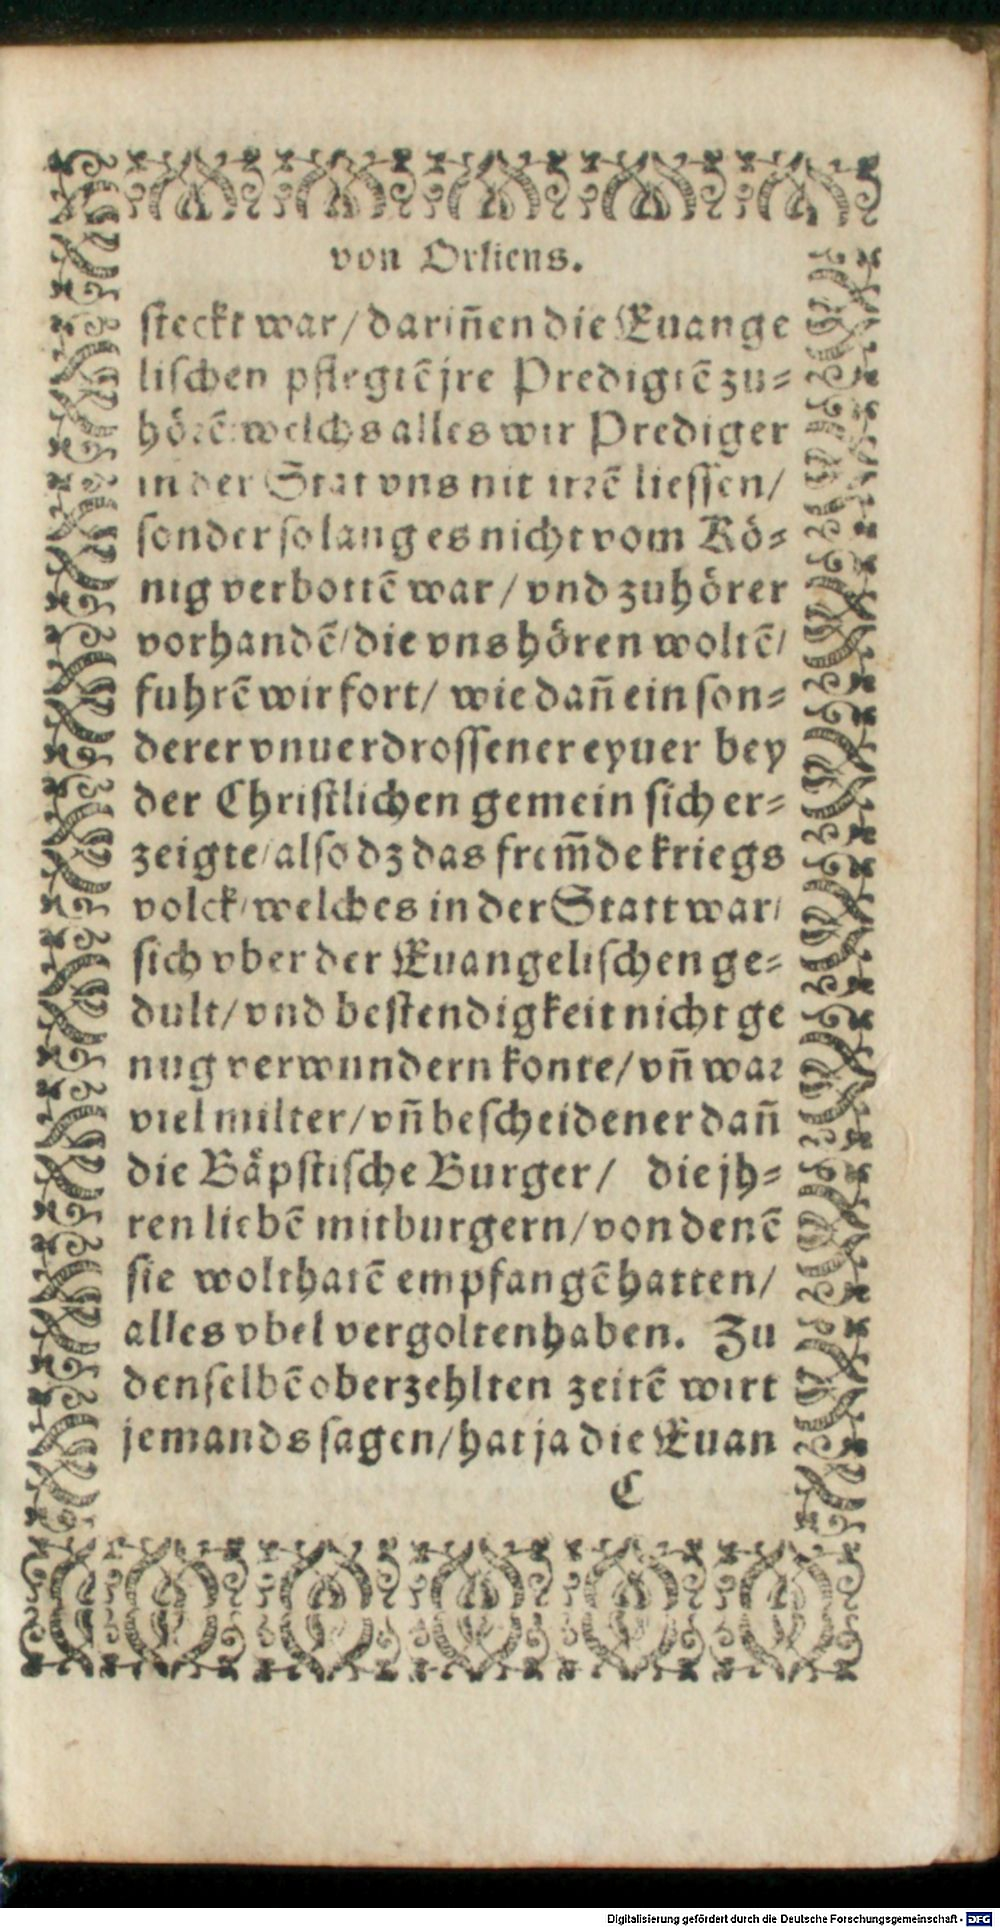 von Orliens.
steckt war/ dariñen die Euange
lischen pflegtē jre Predigtē zu⸗
hörē: welchs alles wir Prediger
in der Stat vns nit irrē liessen/
sonder so lang es nicht vom Kö⸗
nig verbottē war/ vnd zuhörer
vorhandē/ die vns hören woltē/
fuhrē wir fort/ wie dañ ein son⸗
derer vnuerdrossener eyuer bey
der Christlichen gemein sich er⸗
zeigte/ also dz das frem̃de kriegs
volck/ welches in der Statt war/
sich vber der Euangelischen ge⸗
dult/ vnd bestendigkeit nicht ge
nug verwundern konte/ vñ war
viel milter/ vñ bescheidener dañ
die Bäpstische Burger/ die jh⸗
ren liebē mitburgern/ von denē
sie wolthatē empfangē hatten/
alles vbel vergolten haben. Zu
denselbē oberzehlten zeitē wirt
jemands sagen/ hat ja die Euan
C
Digitalisierung gefördert durch die Deutsche Forschungsgemeinschaft - DFG